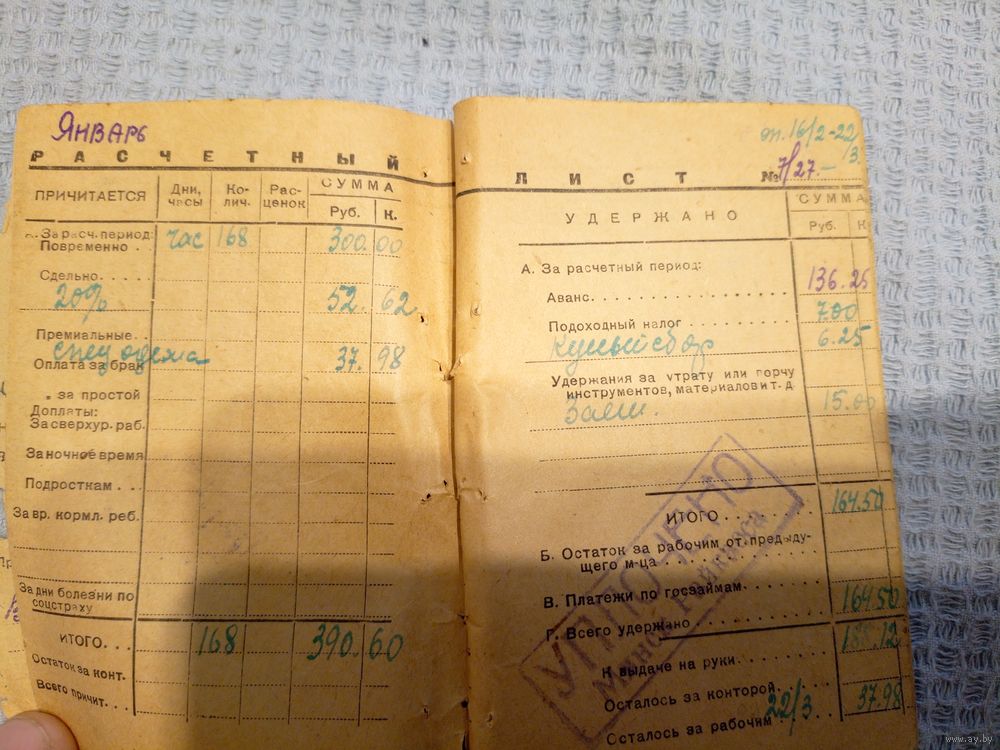 Январь
РАСЧЕТНЫЙ
ПРИЧИТАЕТСЯ
Дни, часы
Ко- лич.
Рас- ценок
СУММА
Руб. К.
За расч. период:
Повременно . час 168 300.00
Сдельно.....
20% 52.62
Премиальные.
спецодежа
Оплата за брак 37.98
„ за простой
Доплаты:
За сверхур. раб.
За ночное время
Подросткам ...
За вр. кормл. реб.
За дни болезни по
соцстраху
ИТОГО... 168 390.60
Остаток за конт.
Всего причит...
16/2-22/3
ЛИСТ № 7/27.-
УДЕРЖАНО
СУММА
Руб. К
А. За расчетный период:
Аванс............ 136.25
Подоходный налог ........ 700
Культсбор 6.25
Удержания за утрату или порчу
инструментов, материалов и т. д.
Заем. 15.00
ИТОГО....... 164.50
Б. Остаток за рабочим от предыду-
щего м-ца........
В. Платежи по госзаймам.......
Г. Всего удержано....... 164.50
К выдаче на руки.......
Осталось за конторой....
Осталось за рабочим . 22/3 37.98
УПЛОЧЕНО
www.ay.by